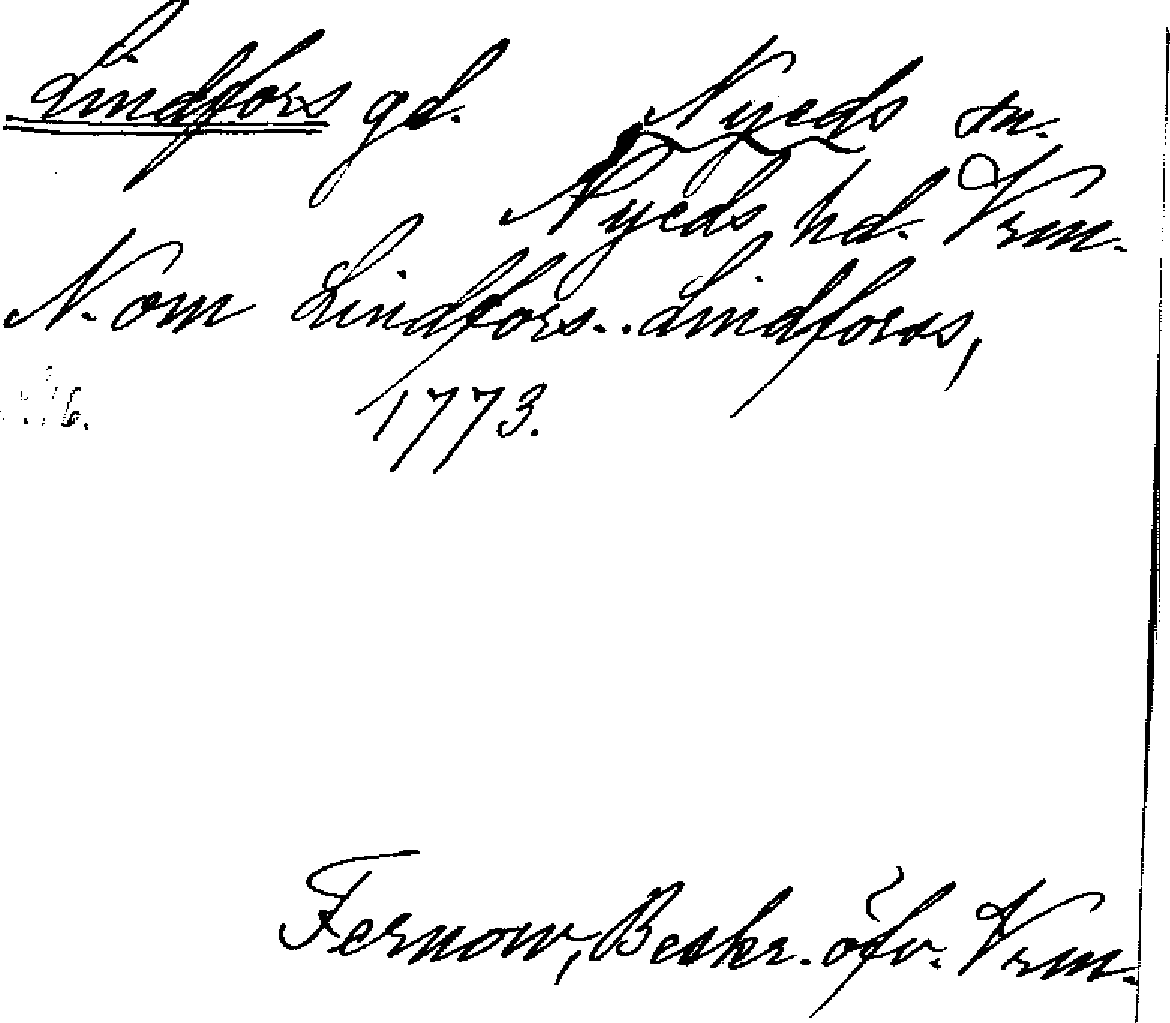 Lindfors gd. Nyeds sn.
Nyeds hd. Vrm.
N. om Lindfors.. Lindforss,
1773.
Fernow, Beskr. öfv. Vrm.